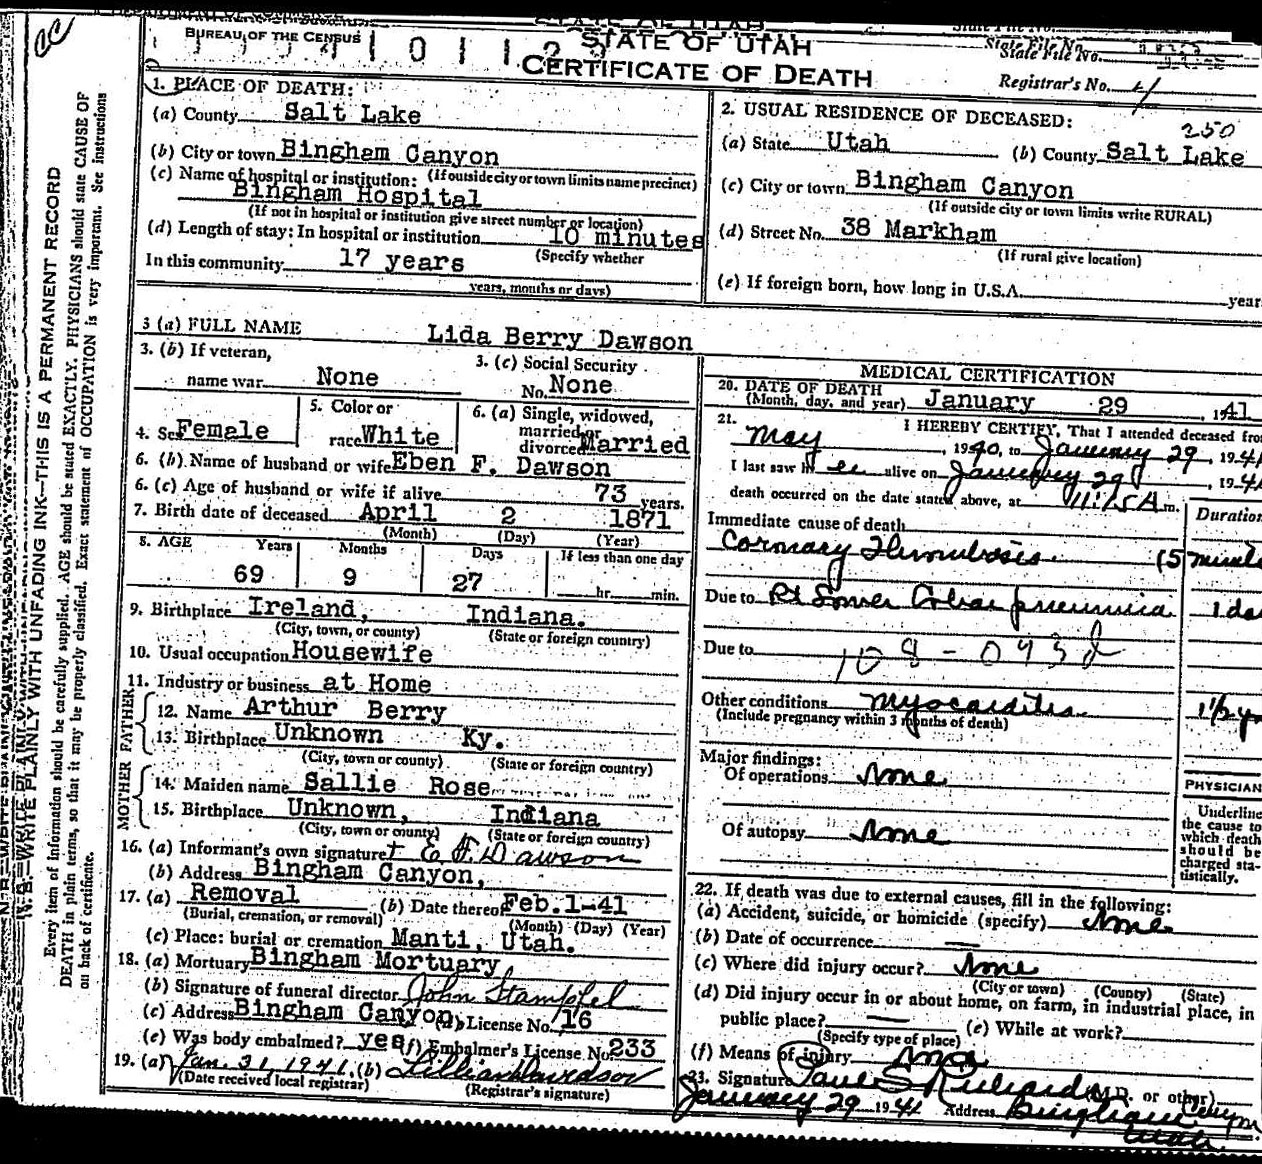 BUREAU OF THE CENSUS
STATE OF UTAH
CERTIFICATE OF DEATH
State File No.
Registrar's No. 4
1. PLACE OF DEATH:
(a) County Salt Lake
(b) City or town Bingham Canyon
(If outside city or town limits name precinct)
(c) Name of hospital or institution:
Bingham Hospital
(If not in hospital or institution give street number or location)
(d) Length of stay: In hospital or institution 10 minutes
(Specify whether
In this community 17 years
years, months or days)
2. USUAL RESIDENCE OF DECEASED:
250
(a) State Utah (b) County Salt Lake
(c) City or town Bingham Canyon
(If outside city or town limits write RURAL)
(d) Street No. 38 Markham
(If rural give location)
(e) If foreign born, how long in U.S.A. year
3 (a) FULL NAME Lida Berry Dawson
3. (b) If veteran,
name war None
3. (c) Social Security
No. None
4. Sex Female
5. Color or
race White
6. (a) Single, widowed,
married or
divorced Married
6. (b) Name of husband or wife Eben F. Dawson
6. (c) Age of husband or wife if alive 73 years.
7. Birth date of deceased April 2 1871
(Month) (Day) (Year)
8. AGE Years Months Days If less than one day
69 9 27 hr. min.
9. Birthplace Ireland, Indiana.
(City, town, or county) (State or foreign country)
10. Usual occupation Housewife
11. Industry or business at Home
FATHER
12. Name Arthur Berry
13. Birthplace Unknown Ky.
(City, town or county) (State or foreign country)
MOTHER
14. Maiden name Sallie Rose
15. Birthplace Unknown, Indiana
(City, town or county) (State or foreign country)
16. (a) Informant's own signature E F Dawson
(b) Address Bingham Canyon,
17. (a) Removal (b) Date thereof Feb.1-41
(Burial, cremation, or removal) (Month) (Day) (Year)
(c) Place: burial or cremation Manti, Utah.
18. (a) Mortuary Bingham Mortuary
(b) Signature of funeral director John Stampfel
(c) Address Bingham Canyon (d) License No. 16
(e) Was body embalmed? yes (f) Embalmer's License No. 233
19. (a) Jan. 31, 1941. (b) Lillian Davidson
(Date received local registrar) (Registrar's signature)
MEDICAL CERTIFICATION
20. DATE OF DEATH
(Month, day, and year) January 29, 1941
21. I HEREBY CERTIFY, That I attended deceased from
May, 1940, to January 29, 1941
I last saw her alive on January 29, 194
death occurred on the date stated above, at 11:15 A m.
Duration
Immediate cause of death
Coronary Thrombosis (5 minute
Due to Rt Lower Lobar pneumonia 1 da
Due to 108-093d
Other conditions Myocarditis 1½ y
(Include pregnancy within 3 months of death)
Major findings:
Of operations None
Of autopsy None
PHYSICIAN
Underline
the cause to
which death
should be
charged sta-
tistically.
22. If death was due to external causes, fill in the following:
(a) Accident, suicide, or homicide (specify) None
(b) Date of occurrence —
(c) Where did injury occur? None
(City or town) (County) (State)
(d) Did injury occur in or about home, on farm, in industrial place, in
public place? — (e) While at work?
(Specify type of place)
(f) Means of injury
23. Signature Paul S Richards (M.D. or other)
January 29 1941 Address Bingham Canyon
Utah
N. B.—WRITE PLAINLY WITH UNFADING INK—THIS IS A PERMANENT RECORD
Every item of information should be carefully supplied. AGE should be stated EXACTLY. PHYSICIANS should state CAUSE OF
DEATH in plain terms, so that it may be properly classified. Exact statement of OCCUPATION is very important. See instructions
on back of certificate.